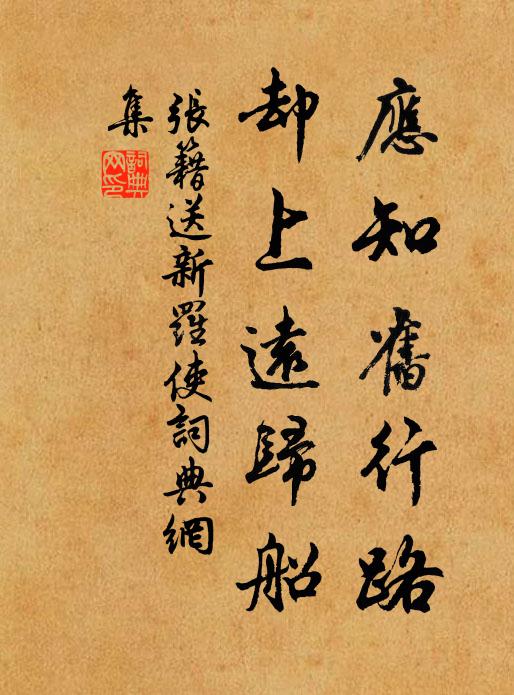 應知舊行路
却上遠歸船
張籍送新羅使詞典網
集
詞典
网印